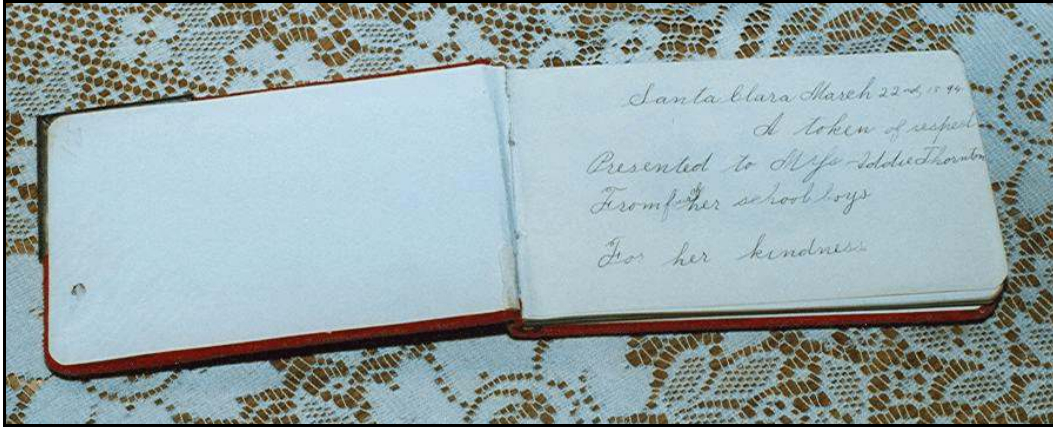 Santa Clara March 22nd, 1894
A token of respect
Presented to Mifs Addie Thornton
From of her school boys
For her kindness